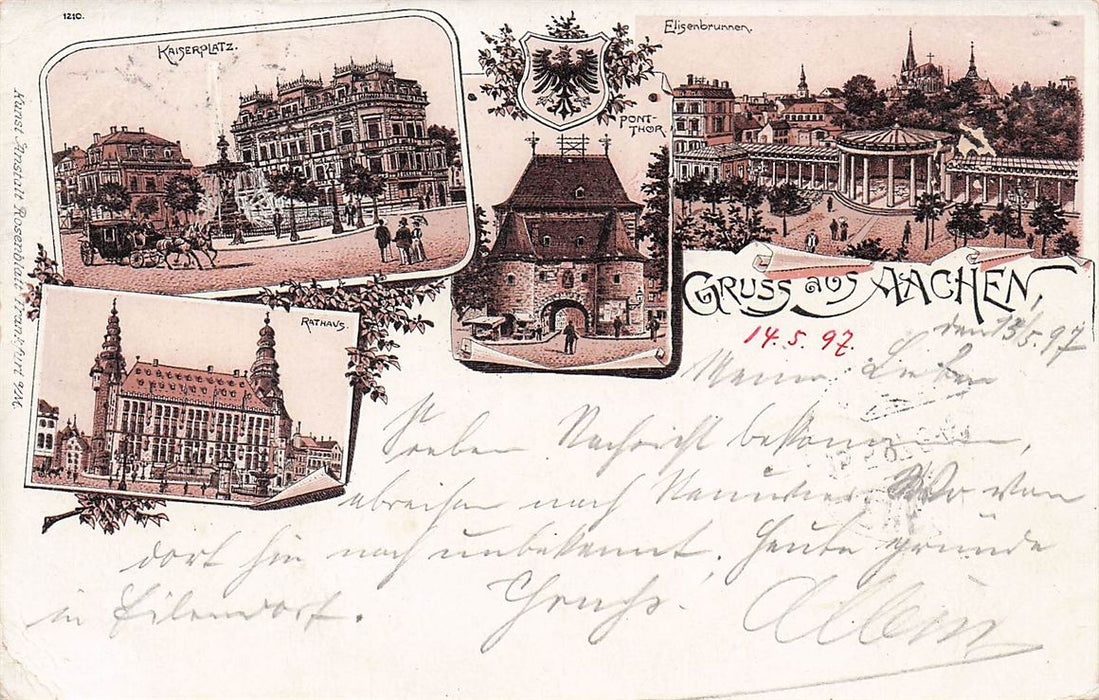 1210.
KAISERPLATZ.
Elisenbrunnen.
PONT-
THOR
RATHAUS.
Kunst-Anstalt Rosenblatt Frankfurt a/M.
GRUSS aus AACHEN,
14. 5. 97.
den 13/5. 97
Meine Lieben
Soeben Nachricht bekommen,
abreisen nach
dort hin noch unbekannt. Heute
in Eilendorf. Albin